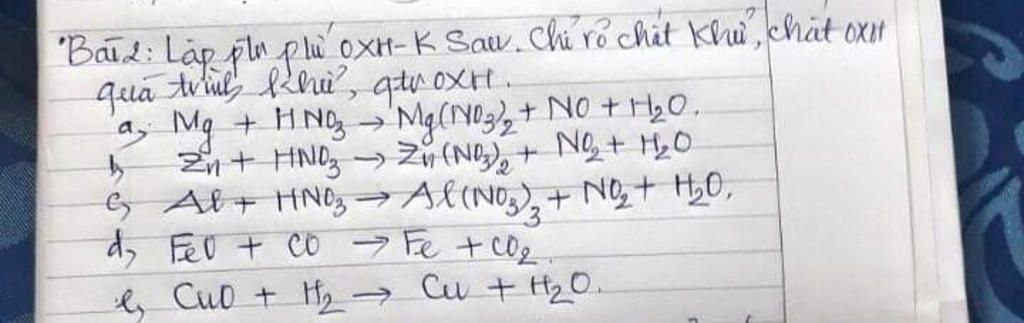 Bài 2: Lập ptr p/ư OXH-K Sau. Chỉ rõ chất Khử, chất OXH
quá trình khử, qtr OXH.
a, Mg + HNO₃ → Mg(NO₃)₂ + NO + H₂O.
b, Zn + HNO₃ → Zn(NO₃)₂ + NO₂ + H₂O
c, Al + HNO₃ → Al(NO₃)₃ + NO₂ + H₂O.
d, FeO + CO → Fe + CO₂.
e, CuO + H₂ → Cu + H₂O.